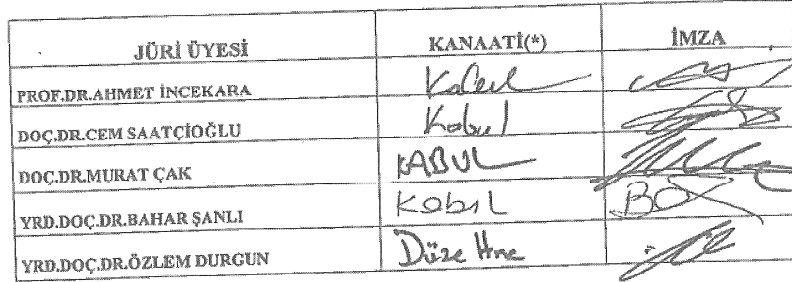 JÜRİ ÜYESİ KANAATİ(*) İMZA
PROF.DR.AHMET İNCEKARA Kabul
DOÇ.DR.CEM SAATÇİOĞLU Kabul
DOÇ.DR.MURAT ÇAK KABUL
YRD.DOÇ.DR.BAHAR ŞANLI Kabul
YRD.DOÇ.DR.ÖZLEM DURGUN Düzeltme